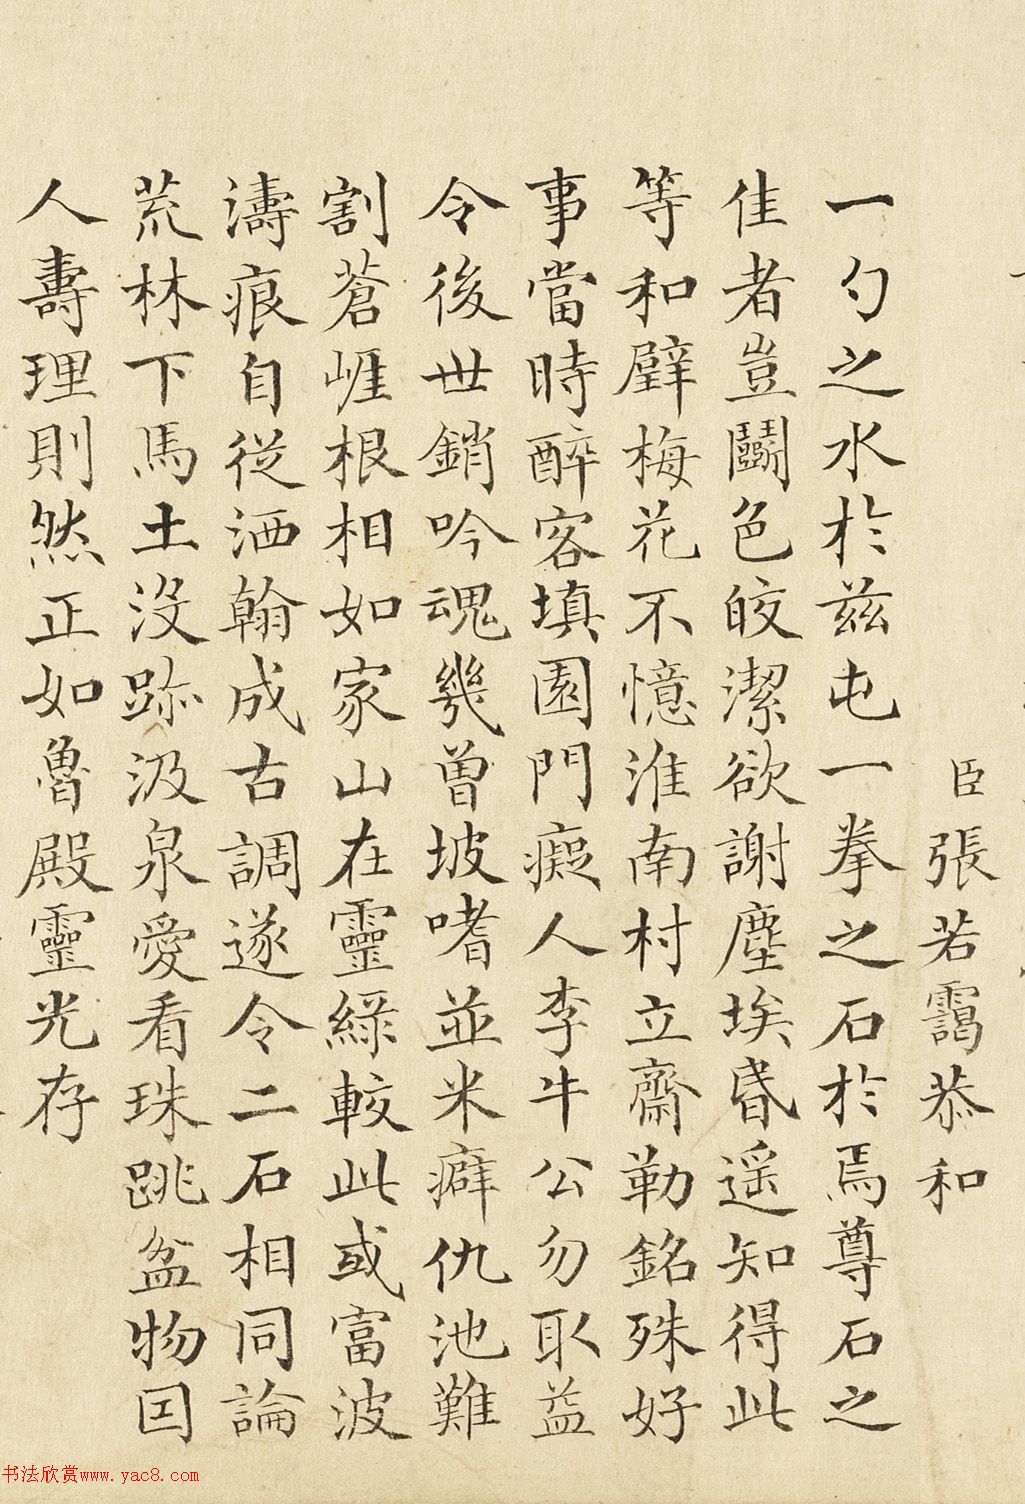 臣張若靄恭和
一勺之水於茲屯一拳之石於焉尊石之
佳者豈鬬色皎潔欲謝塵埃昏遥知得此
等和璧梅花不憶淮南村立齋勒銘殊好
事當時醉客填園門癡人李牛公勿取益
令後世銷吟魂幾曾坡嗜並米癖仇池難
割蒼崕根相如家山在靈緑較此或富波
濤痕自従洒翰成古調遂令二石相同論
荒林下馬土没跡汲泉愛看珠跳盆物因
人壽理則然正如魯殿靈光存
书法欣赏www.yac8.com